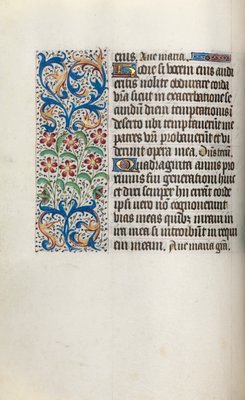 eius. Aue maria.
Hodie si vocem eius audi
eritis nolite obdurare corda
vestra sicut in exacerbatione se
cundum diem temptationis in
deserto ubi temptauerunt me
patres vestri probauerunt et vi
derunt opera mea. Dns tecum.
Quadraginta annis proxi
mus fui generationi huic
et dixi semper hii errant corde
ipsi vero non cognouerunt
vias meas quibus iuraui in
ira mea si introibunt in requi
em meam. Aue maria gra.